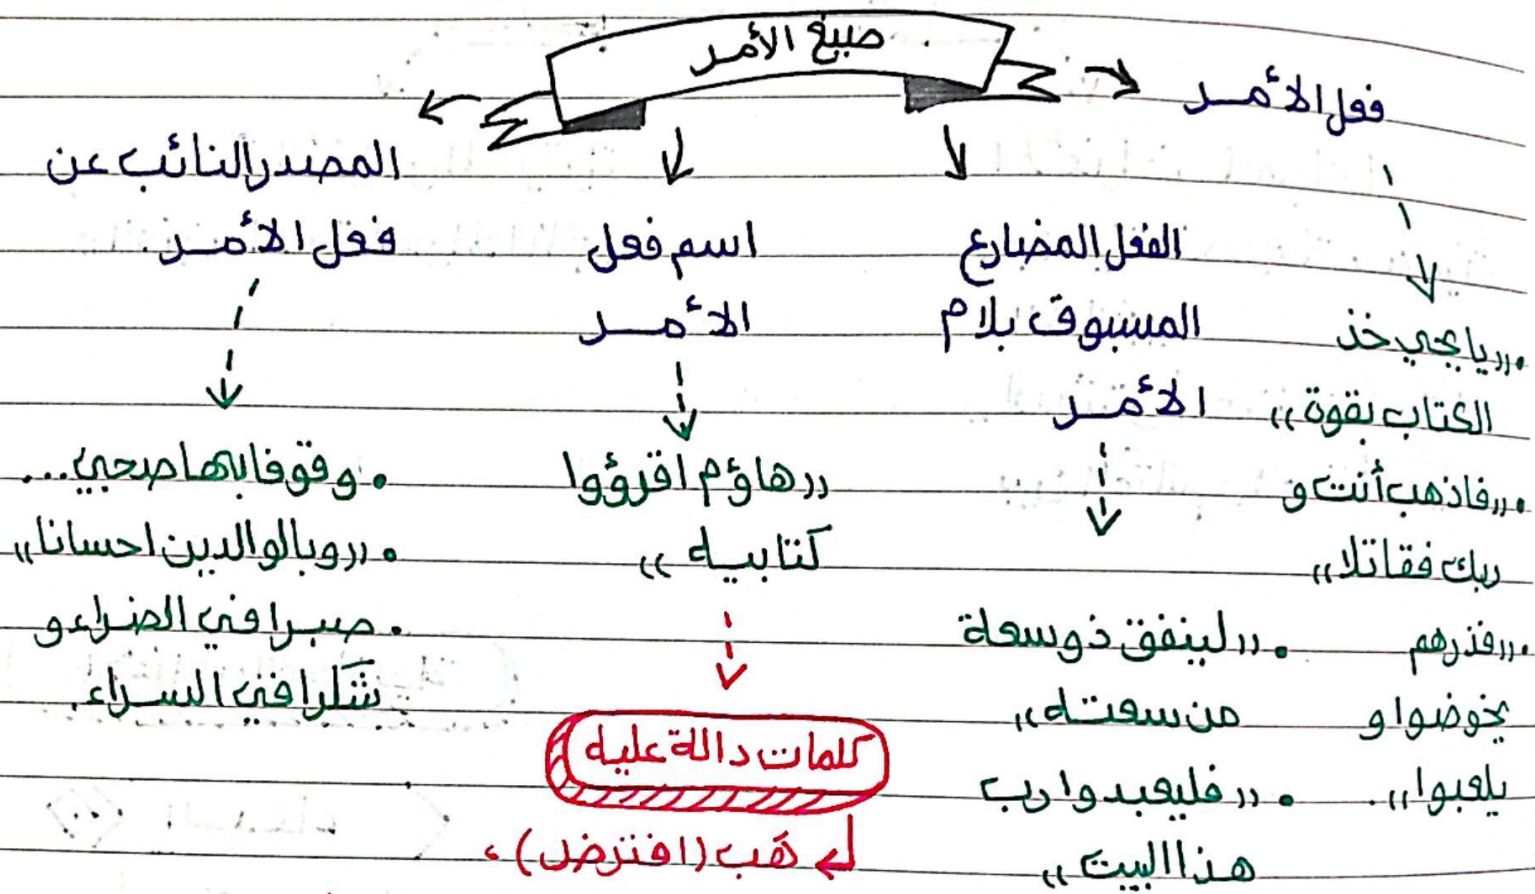 صيغ الأمر
فعل الأمر
• «يا يحيى خذ
الكتاب بقوة»
• «فاذهب أنت و
ربك فقاتلا»
• «فذرهم
يخوضوا و
يلعبوا».
الفعل المضارع
المسبوق بلام
الأمر
• «لينفق ذو سعة
من سعته»
• «فليعبدوا رب
هذا البيت»
اسم فعل
الأمر
«هاؤم اقرؤوا
كتابيه»
كلمات دالة عليه
هَب (افترض)،
المصدر النائب عن
فعل الأمر.
• وقوفا بها صحبي...
• «وبالوالدين احسانا»
• صبرا في الضراء و
شكرا في السراء.